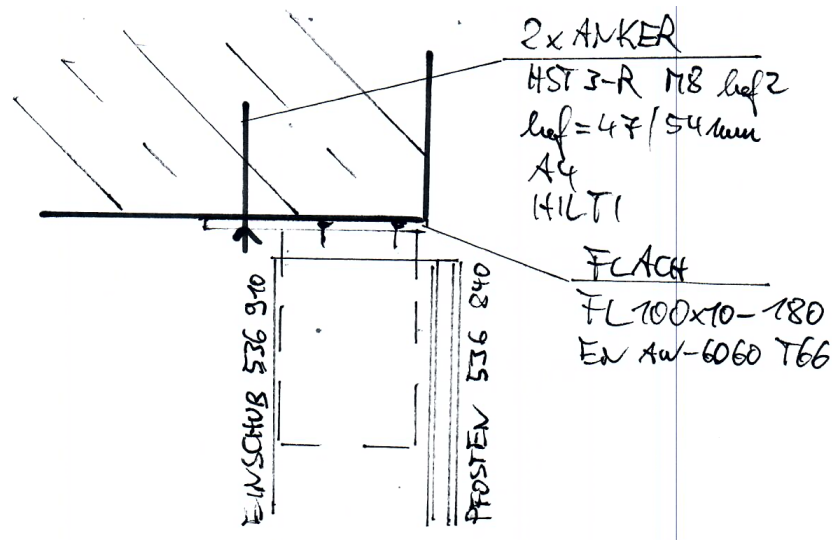 2x ANKER
HST3-R M8 hef2
hef = 47/54mm
A4
HILTI
FLACH
FL 100x10-180
EN AW-6060 T66
EINSCHUB 536 910
PFOSTEN 536 840